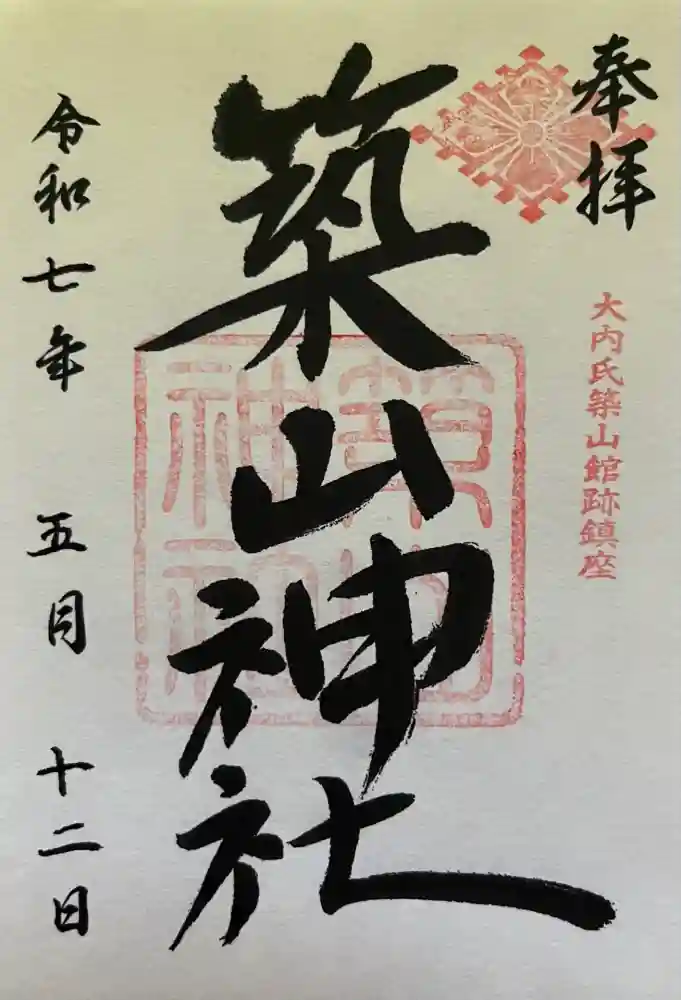 奉拝
大内氏築山館跡鎮座
築山神社
築山神社
令和七年 五月 十二日